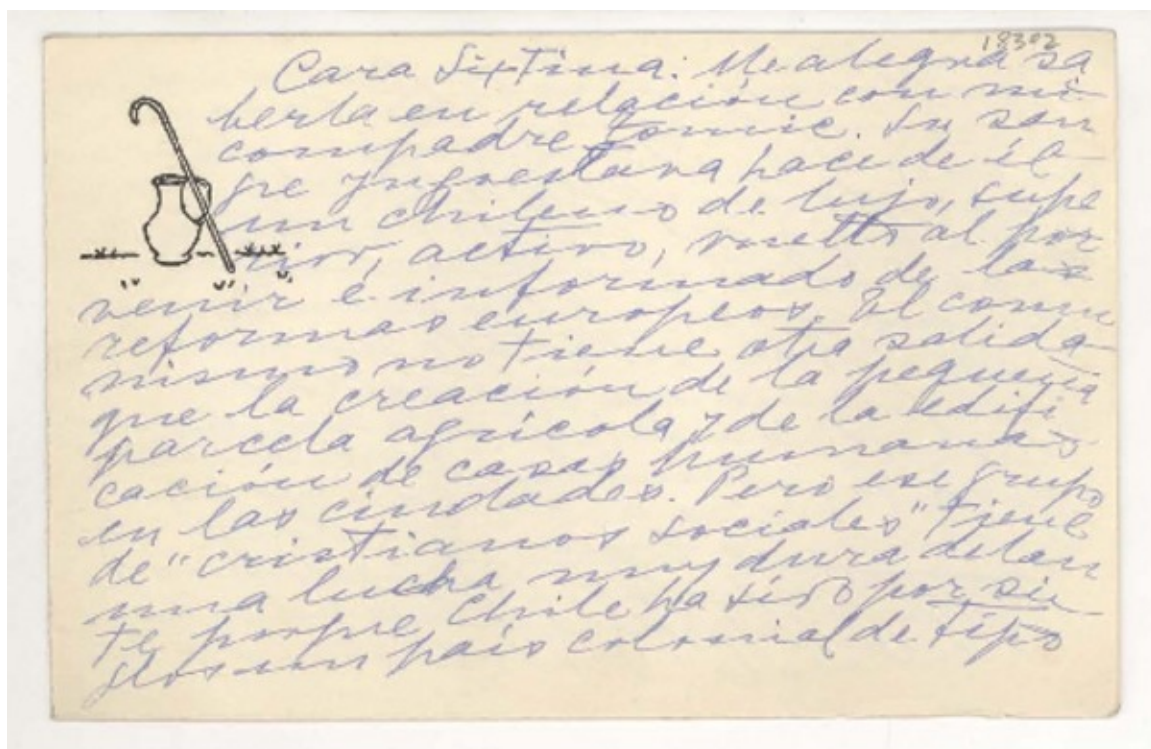 18302
Cara Sixtina: Me alegra sa
berla en relación con mi
compadre Tomic. Su san
gre yugoeslava hace de él
un chileno de lujo, supe
rior, activo, vuelto al por
venir é informado de las
reformas europeas. El comu
nismo no tiene otra salida
que la creación de la pequeña
parcela agrícola y de la edifi
cación de casas humanas
en las ciudades. Pero ese grupo
de "cristianos sociales" tiene
una lucha muy dura delan
te porque Chile ha sido por si
glos un país colonial de tipo